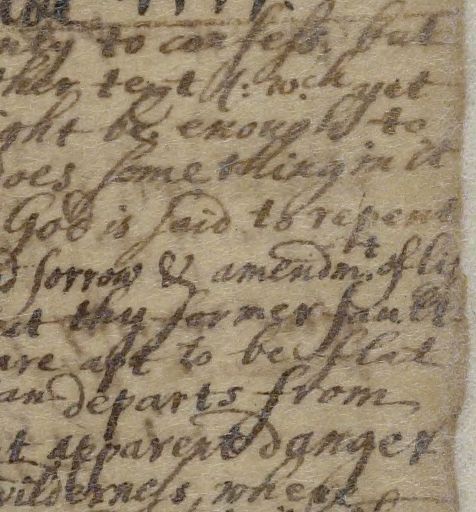 to confess, but
ther text &: wch yet
ight be enough to
does some thing in it
God is said to repent
d sorrow & amendmt. of li
thy former fault
are apt to be flat
an departs from
t apparent danger
wilderness, where